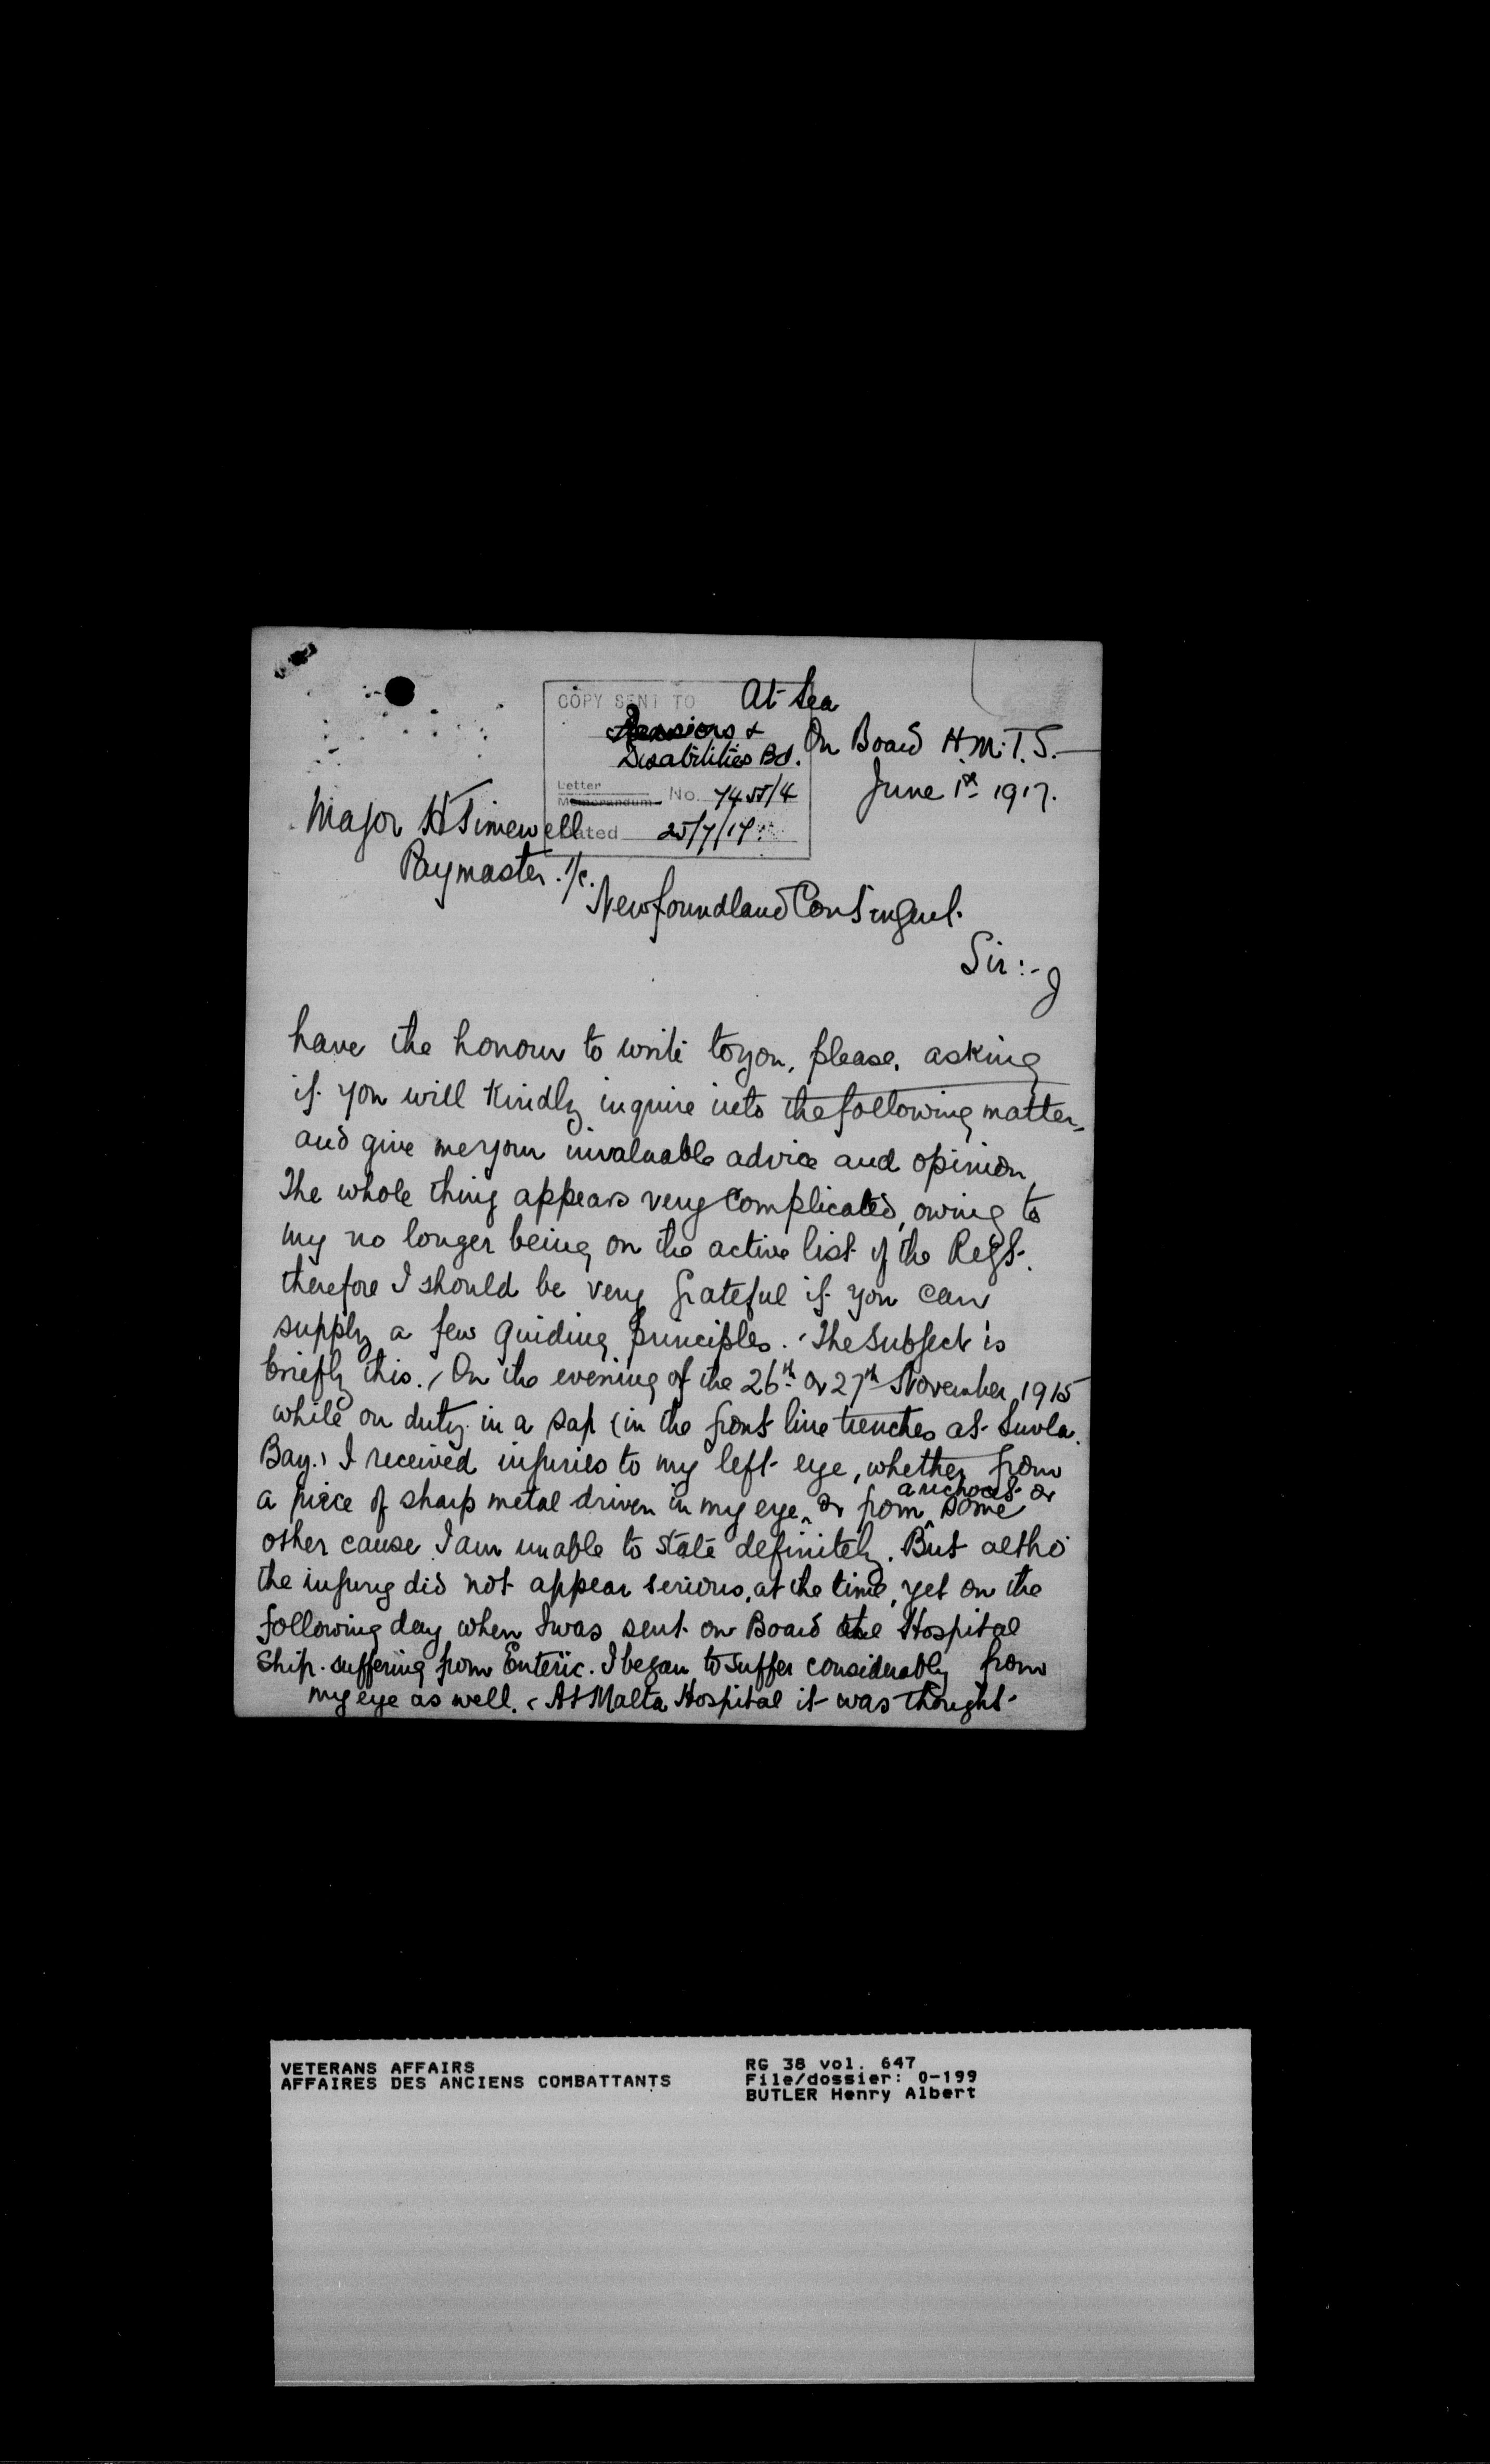 At Sea
On Board H.M.T.S.—
June 1st 1917.
COPY SENT TO
Pensions &
Disabilities Bd.
Letter
Memorandum No. 7455/4
Dated 25/7/17
Major H Timewell
Paymaster. i/c.
Newfoundland Contingent.
Sir:- I
have the honour to write to you, please, asking
if you will kindly inquire into the following matter,
and give me your invaluable advice and opinion,
The whole thing appears very complicated, owing to
my no longer being on the active list of the Regt.
therefore I should be very grateful if you can
supply a few guiding principles. The subject is
briefly this. On the evening of the 26th or 27th November 1915
while on duty in a sap (in the front line trenches at Suvla.
Bay.) I received injuries to my left eye, whether from
a richochet or
a piece of sharp metal driven in my eye, or from some
other cause I am unable to state definitely. But altho'
the injury did not appear serious, at the time, yet on the
following day when I was sent on Board the Hospital
Ship. suffering from Enteric. I began to suffer considerably from
my eye as well. At Malta Hospital it was thought
VETERANS AFFAIRS
AFFAIRES DES ANCIENS COMBATTANTS
RG 38 vol. 647
File/dossier: 0-199
BUTLER Henry Albert